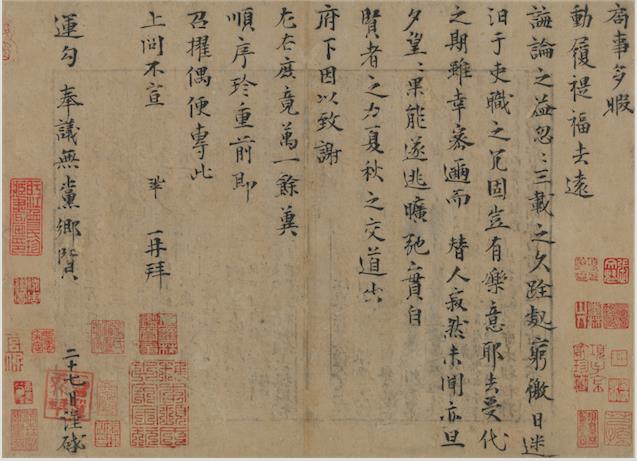 局事多暇
動履禔福去遠
誨論之益忽忽三載之久跧處窮徼日迷
汩于吏職之冗固豈有樂意耶去受代
之期雖幸密邇而替人寂然未聞亦旦
夕望望果能遂逃曠弛之實自
賢者之力夏秋之交道出
府下因以致謝
左右庶竟萬一餘冀
順序珍重前即
召擢偶便專此
上問不宣 鞏 再拜
運勾 奉議無黨鄉賢 二十七日謹啓